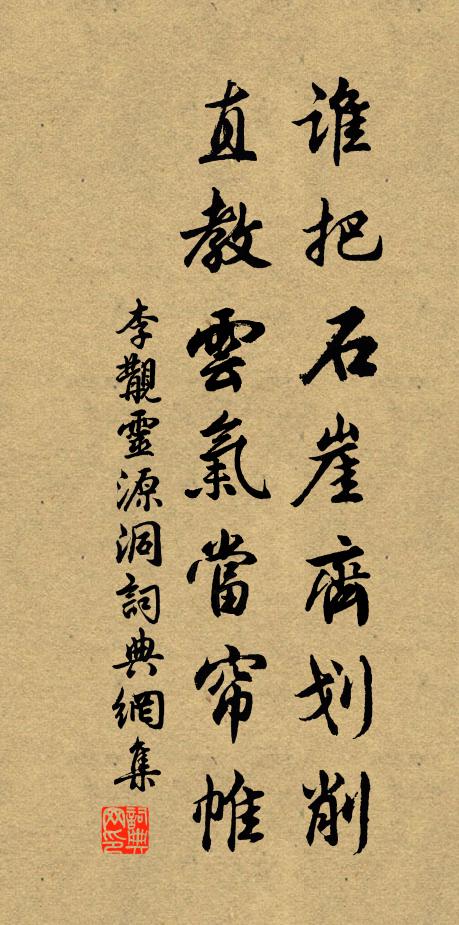 誰把石崖齊划削
直教雲氣當帘帷
李觀靈源洞詞典網集
詞典网印